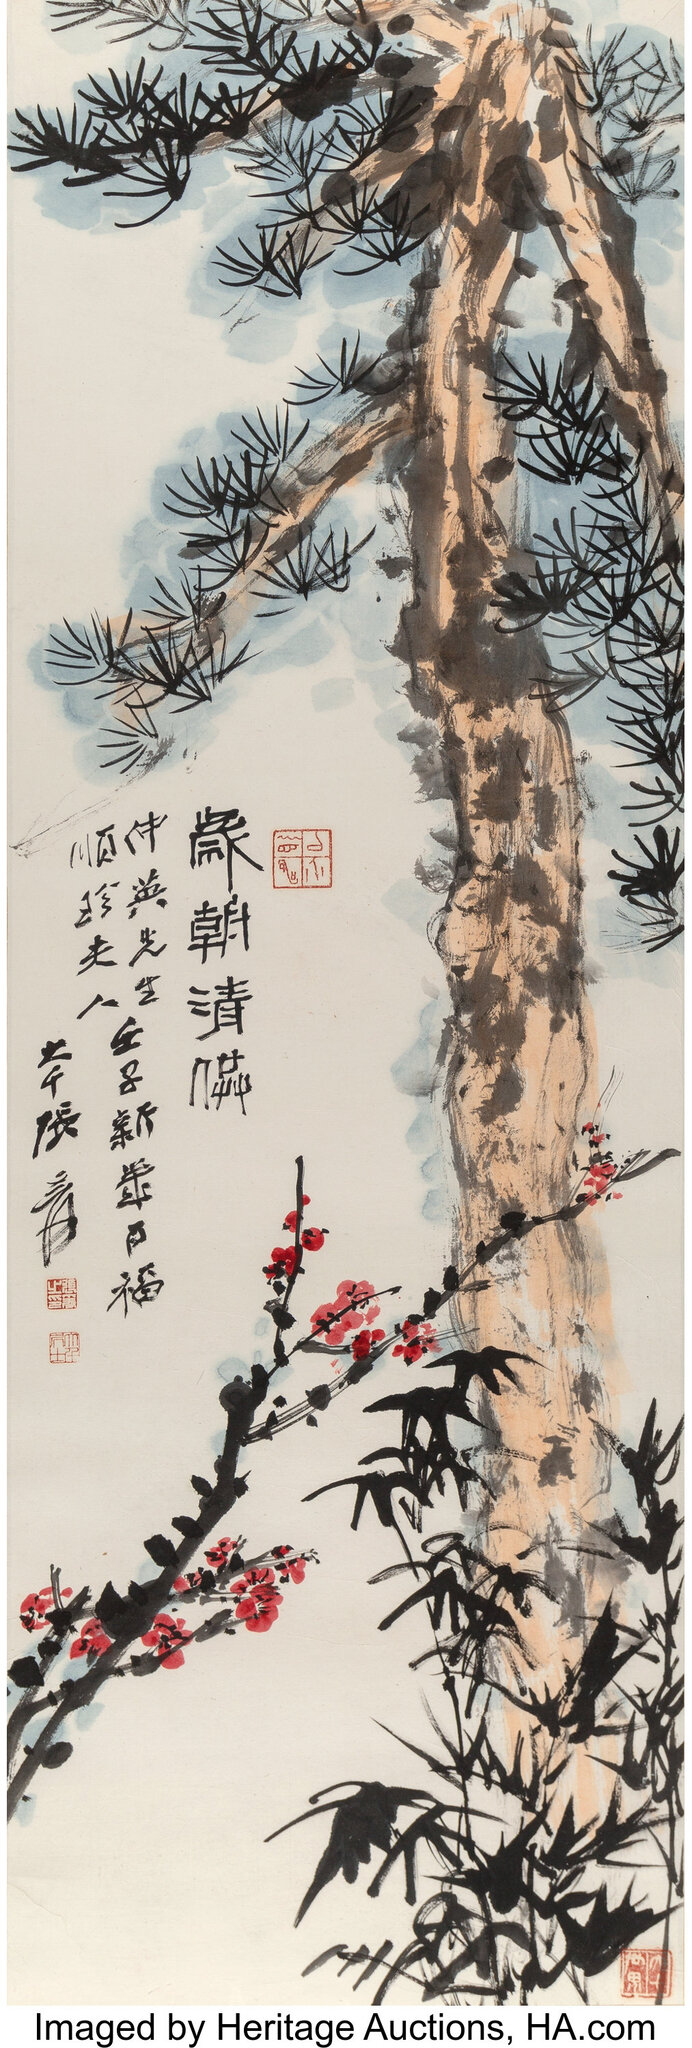 歲朝清供
仲英先生
順珍夫人壬子新歲百福
大千張爰
Imaged by Heritage Auctions, HA.com